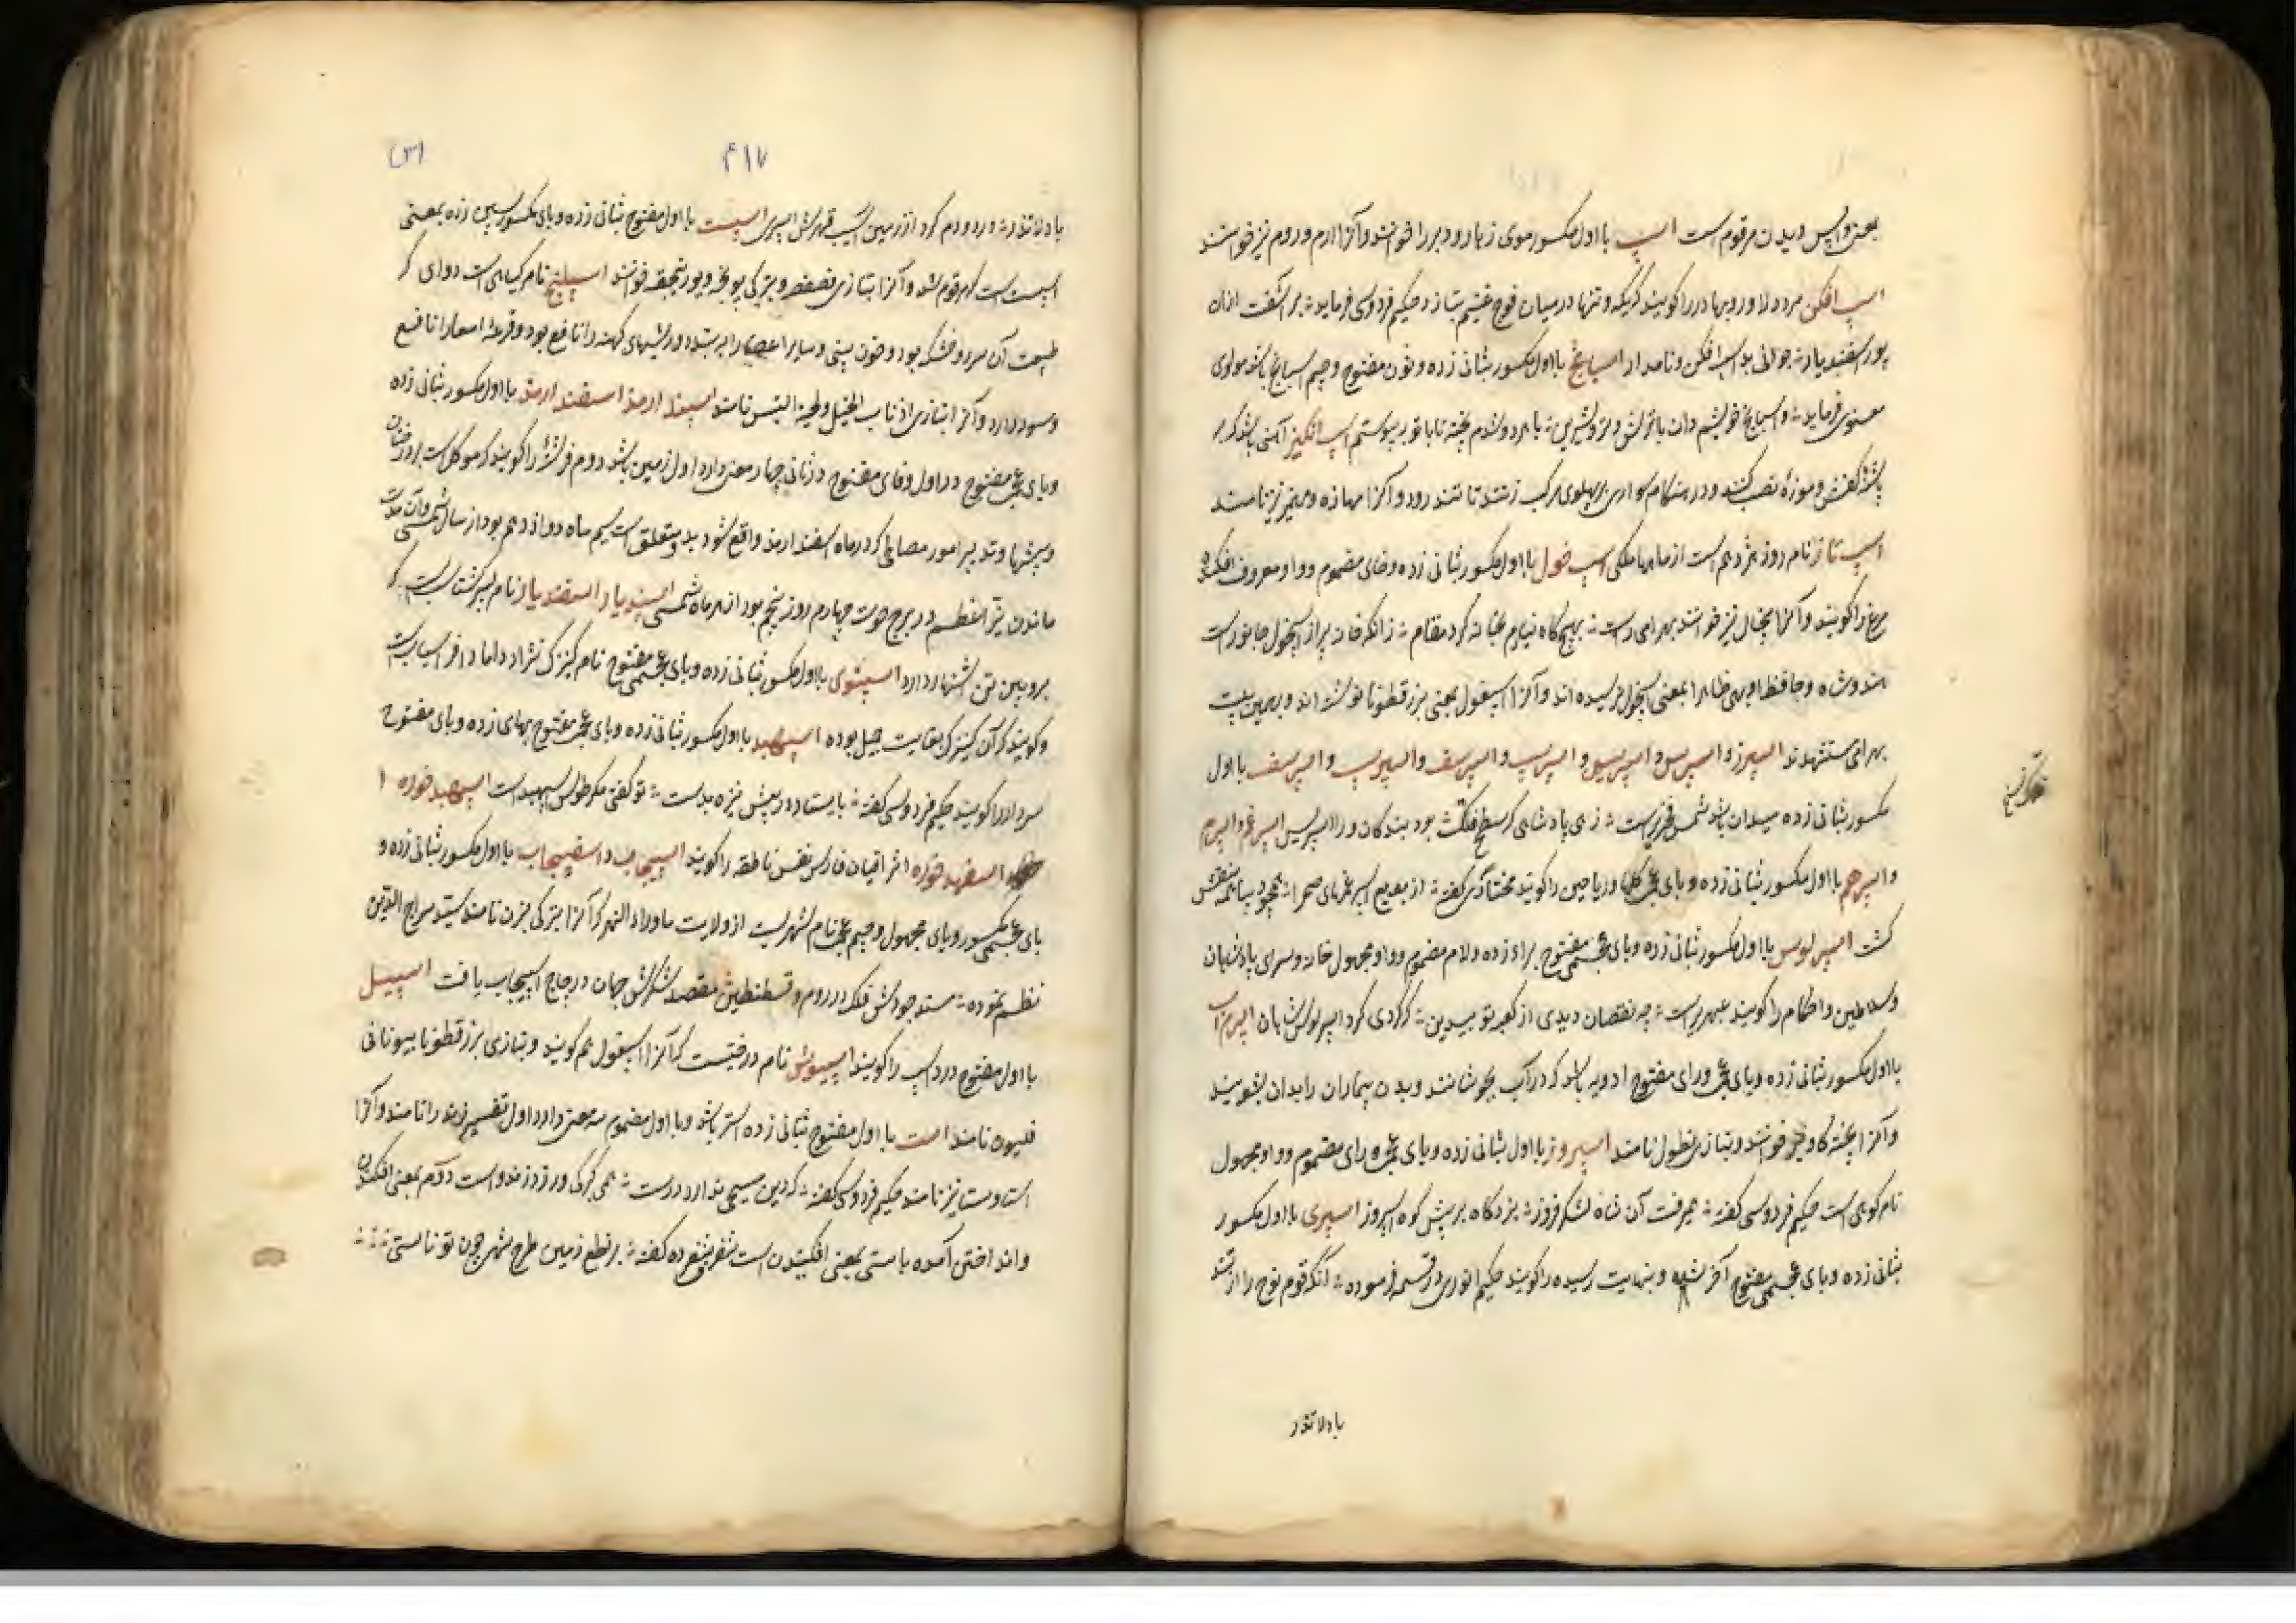 بمعنی واپس دیدن مرقوم است اسب با اول مکسور موی زهار و دبر را خوانند و آنرا ارم و روم نیز خوانند
اسپ افکن مرد دلاور و بهادر را گویند که یکه و تنها در میان فوج غنیم بتازد حکیم فردوسی فرماید بر آشفت ازان
پور اسفندیار جوانی بد اسپ افکن و نامدار اسپانخ با اول مکسور بثانی زده و نون مفتوح و جیم اسپانخ باشد مولوی
معنوی فرماید و اسپانخ خویشم دان با ترش پز و شیرین با هر دو شدم پخته تا با تو بپیوستم اسپ انگیز آهنی باشد که بر
پاشنه کفش و موزه نصب کنند و در هنگام سواری بر پهلوی مرکب زنند تا تند رود و آنرا مهازه و مهمیز نیز نامند
اسپ تاز نام روز هژدهم است از ماههای ملکی اسپ خول با اول مکسور بثانی زده و خای مضموم و واو معروف افکنده
مرغ را گویند و آنرا پیخال نیز خوانند بهرامی راست بهیچ گاه نیارم بخانه کرد مقام زانکه خانه پر از اسپخول جانور است
هندوشاه و حافظ اوبهی ظاهرا بمعنی اسپخول نرسیده اند و آنرا اسپغول بمعنی بزرقطونا نوشته اند و بهمین بیت
بهرامی مستشهدند اسپرز و اسپرس و اسپریس و اسپرسپ و اسپرسف و اسپریسپ و اسپریسف با اول
مکسور بثانی زده میدان باشد شمس فخری راست زهی پادشاهی که سطح فلک بود بندگان ورا اسپریس اسپرغم و اسپرم
و اسپرهم با اول مکسور بثانی زده و بای عجمی گلها و ریاحین را گویند مختاری گفته از بدیع اسپرغمهای صحرا همچو دیبا منقش
گشت اسپرلوس با اول مکسور بثانی زده و بای عجمی مفتوح براء زده و لام مضموم و واو مجهول خانه و سرای پادشاهان
و سلاطین و احکام را گویند عبهری راست چه نقصان دیدی از کعبه تو بیدین که گردی گرد اسپرلوس شاهان اسپرم آب
با اول مکسور بثانی زده و بای عجمی و رای مفتوح ادویه باشد که در آب بجوشانند و بدن بیماران را بدان بشویند
و آنرا پخته گاو نیز خوانند و بتازی نطول نامند اسپروز با اول بثانی زده و بای عجمی و رای مضموم و واو مجهول
نام کوهی است حکیم فردوسی گفته همیرفت آن شاه لشکر فروز بزد گاه بر پیش کوه اسپروز اسپری با اول مکسور
بثانی زده و بای عجمی مفتوح آخر شده و بنهایت رسیده را گویند حکیم انوری در قسمیه فرموده آنکه قوم نوح را از تند
باد لاتذر
۴۱۷
باد لاتذر در دو دم کرد از زمین آسیب قهرش اسپری اسپست با اول مفتوح بثانی زده و بای مکسور بسین زده بمعنی
اسپست است که مرقوم شد و آنرا بتازی فصفصه و بترکی یونجه و یورنجقه خوانند اسپلنج نام گیاهی است دوای که
طبیعت آن سرد و خشک بود و خون بینی و سایر اعضا را ببندد و ریشهای کهنه را نافع بود و قرحه امعا را نافع
و سود دارد و آنرا بتازی اذناب الخیل و لحیة التیس نامند اسپندارمذ اسفندارمذ با اول مکسور بثانی زده
و بای عجمی مفتوح در اول و فای مفتوح در ثانی چهار معنی دارد اول زمین باشد دوم فرشته را گویند که موکل است بر درختان
و بیشها و تدبیر امور و مصالحی که در ماه اسفندارمذ واقع شود بدو متعلق است سیم ماه دوازدهم بود از سال شمسی و آن مدت
ماندن نیر اعظم در برج حوت چهارم روز پنجم بود از هر ماه شمسی اسپندیار و اسفندیار نام پسر گشتاسپ است که
برویین تن اشتهار دارد اسپنوی با اول مکسور بثانی زده و بای عجمی مفتوح نام کنیزک تژاو داماد افراسیاب است
و گویند که آن کنیزک بغایت جمیل بوده اسپهبد با اول مکسور بثانی زده و بای عجمی مفتوح بهای زده و بای مفتوح
سردار را گویند حکیم فردوسی گفته بایستاد در پیش نیزه بدست تو گفتی مگر طوس اسپهبد است اسپهبد خوره
اسفهبد خوره اشراقیان فارس نفس ناطقه را گویند اسپیجاب و اسفیجاب با اول مکسور بثانی زده و
بای عجمی مکسور و یای مجهول و جیم عجمی نام شهریست از ولایت ماوراء النهر که آنرا بترکی نامند سید سراج الدین
نظم نموده مسند جودش فلک در روم و قسطنطین مقصد شکرش جهان در چاچ اسپیجاب یافت اسپیل
با اول مفتوح دزد اسپ را گویند اسپیوش نام درختیست که آنرا اسپغول هم گویند و بتازی بزرقطونا بیونانی
فلیون نامند است با اول مفتوح بثانی زده استر باشد و با اول مضموم سه معنی دارد اول تفسیر زند را نامند و آنرا
استا و ستا نیز نامند حکیم فردوسی گفته که دین مسیحی ندارد درست همی گرگی ورزد و زند و است دوم بمعنی افکندن
و انداختن آمده باستی بمعنی افکندن است شفره گفته بر نطع زمین طرح شهی چون تو نا استی